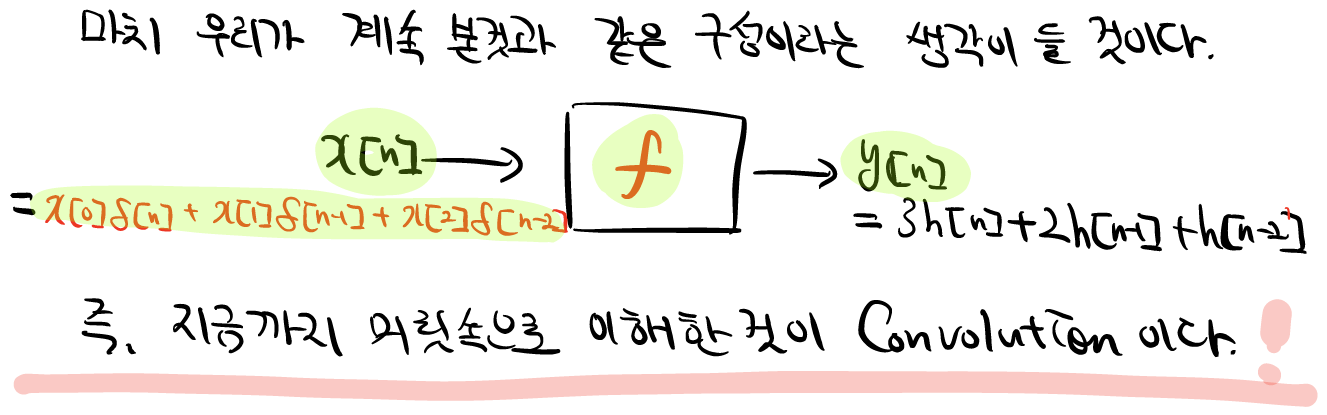 마치 우리가 계속 본것과 같은 구성이라는 생각이 들 것이다.
x[n] → f → y[n]
= x[0]δ[n] + x[1]δ[n-1] + x[2]δ[n-2]
= 3h[n]+2h[n-1]+h[n-2]
즉, 지금까지 머릿속으로 이해한것이 Convolution 이다.!